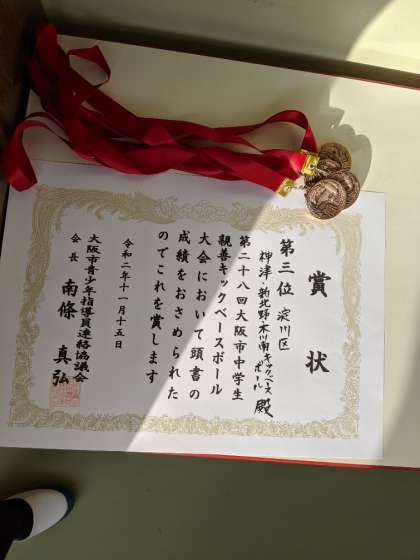 賞状
第三位 淀川区
神津・新北野・木川南キックベースボール 殿
第二十八回大阪市中学生
親善キックベースボール
大会において頭書の
成績をおさめられた
のでこれを賞します
令和二年十一月十五日
大阪市青少年指導員連絡協議会
会長 南條真弘